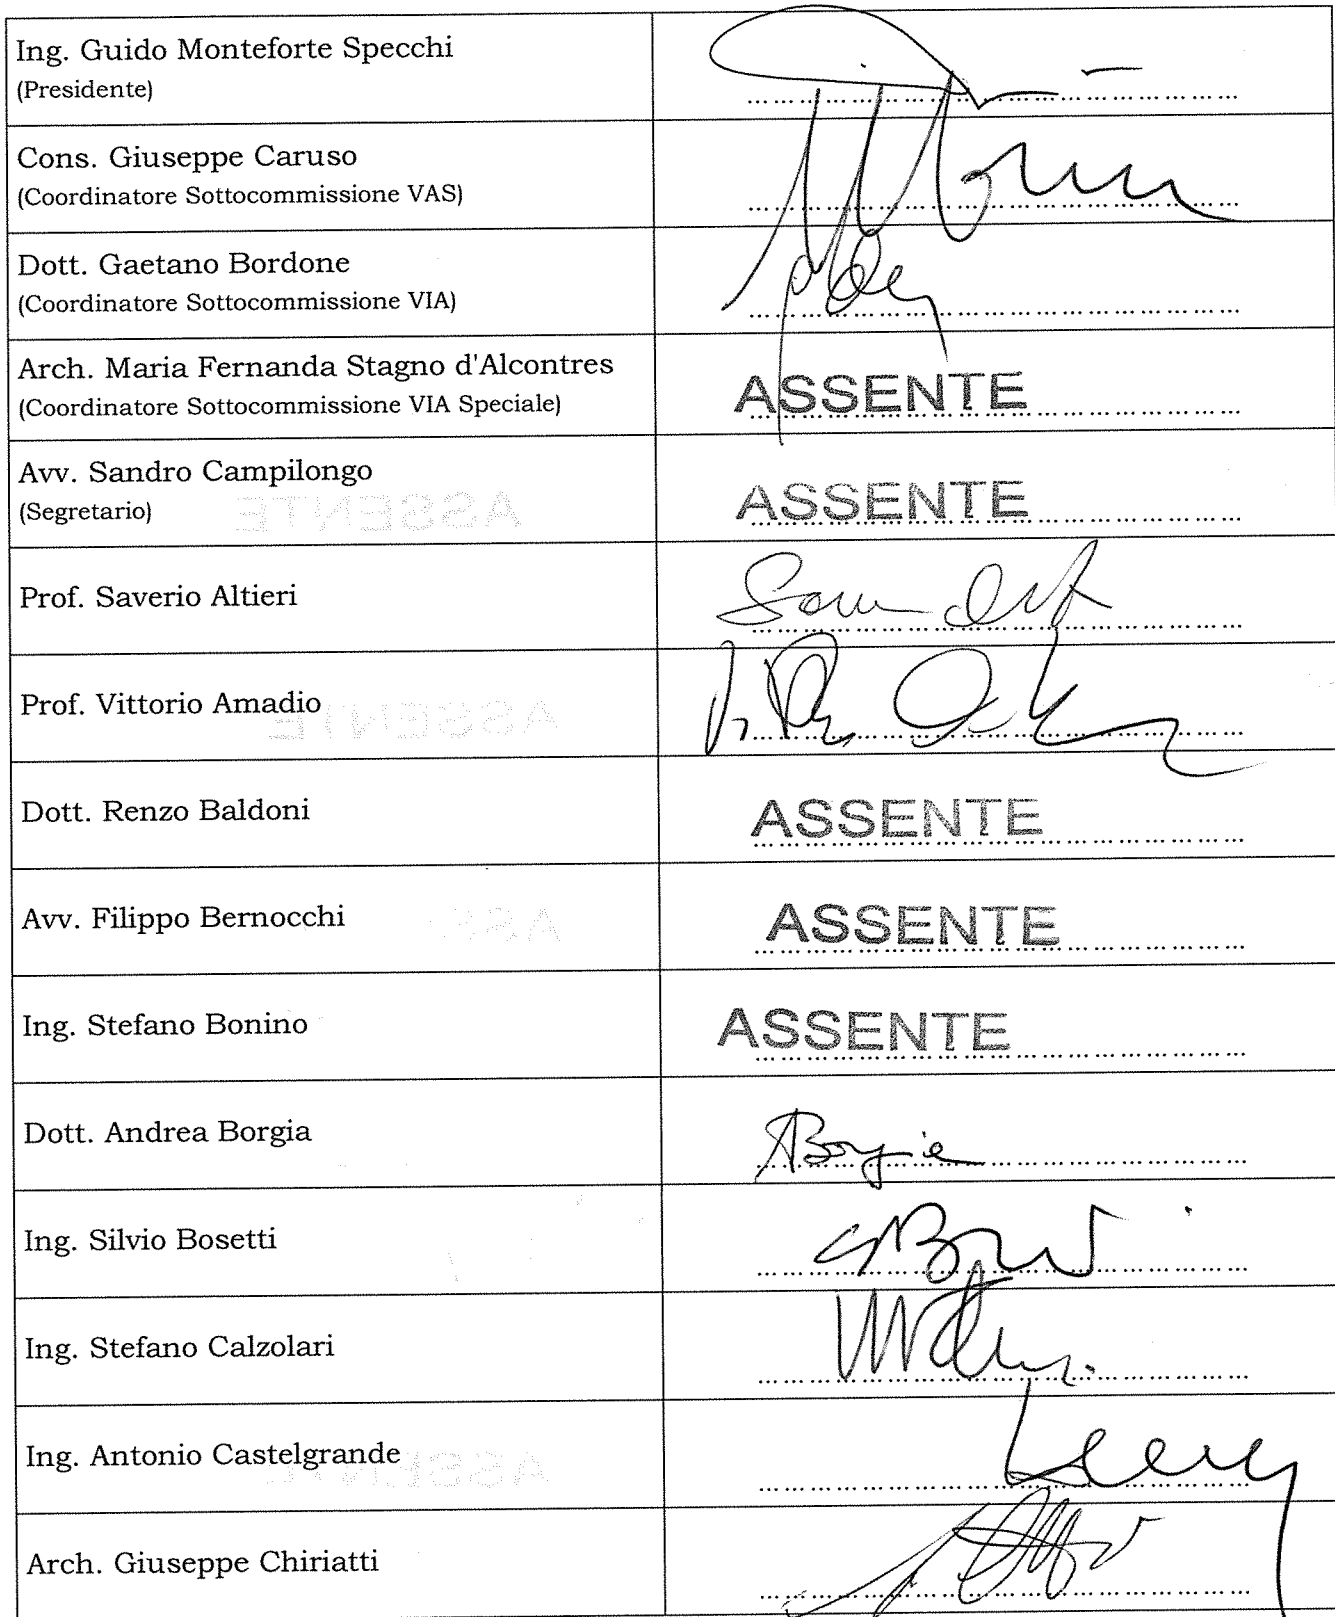 Ing. Guido Monteforte Specchi
(Presidente)
Cons. Giuseppe Caruso
(Coordinatore Sottocommissione VAS)
Dott. Gaetano Bordone
(Coordinatore Sottocommissione VIA)
Arch. Maria Fernanda Stagno d'Alcontres
(Coordinatore Sottocommissione VIA Speciale)
ASSENTE
Avv. Sandro Campilongo
(Segretario)
ASSENTE
Prof. Saverio Altieri
Prof. Vittorio Amadio
Dott. Renzo Baldoni
ASSENTE
Avv. Filippo Bernocchi
ASSENTE
Ing. Stefano Bonino
ASSENTE
Dott. Andrea Borgia
ABorgia
Ing. Silvio Bosetti
Ing. Stefano Calzolari
Ing. Antonio Castelgrande
Arch. Giuseppe Chiriatti